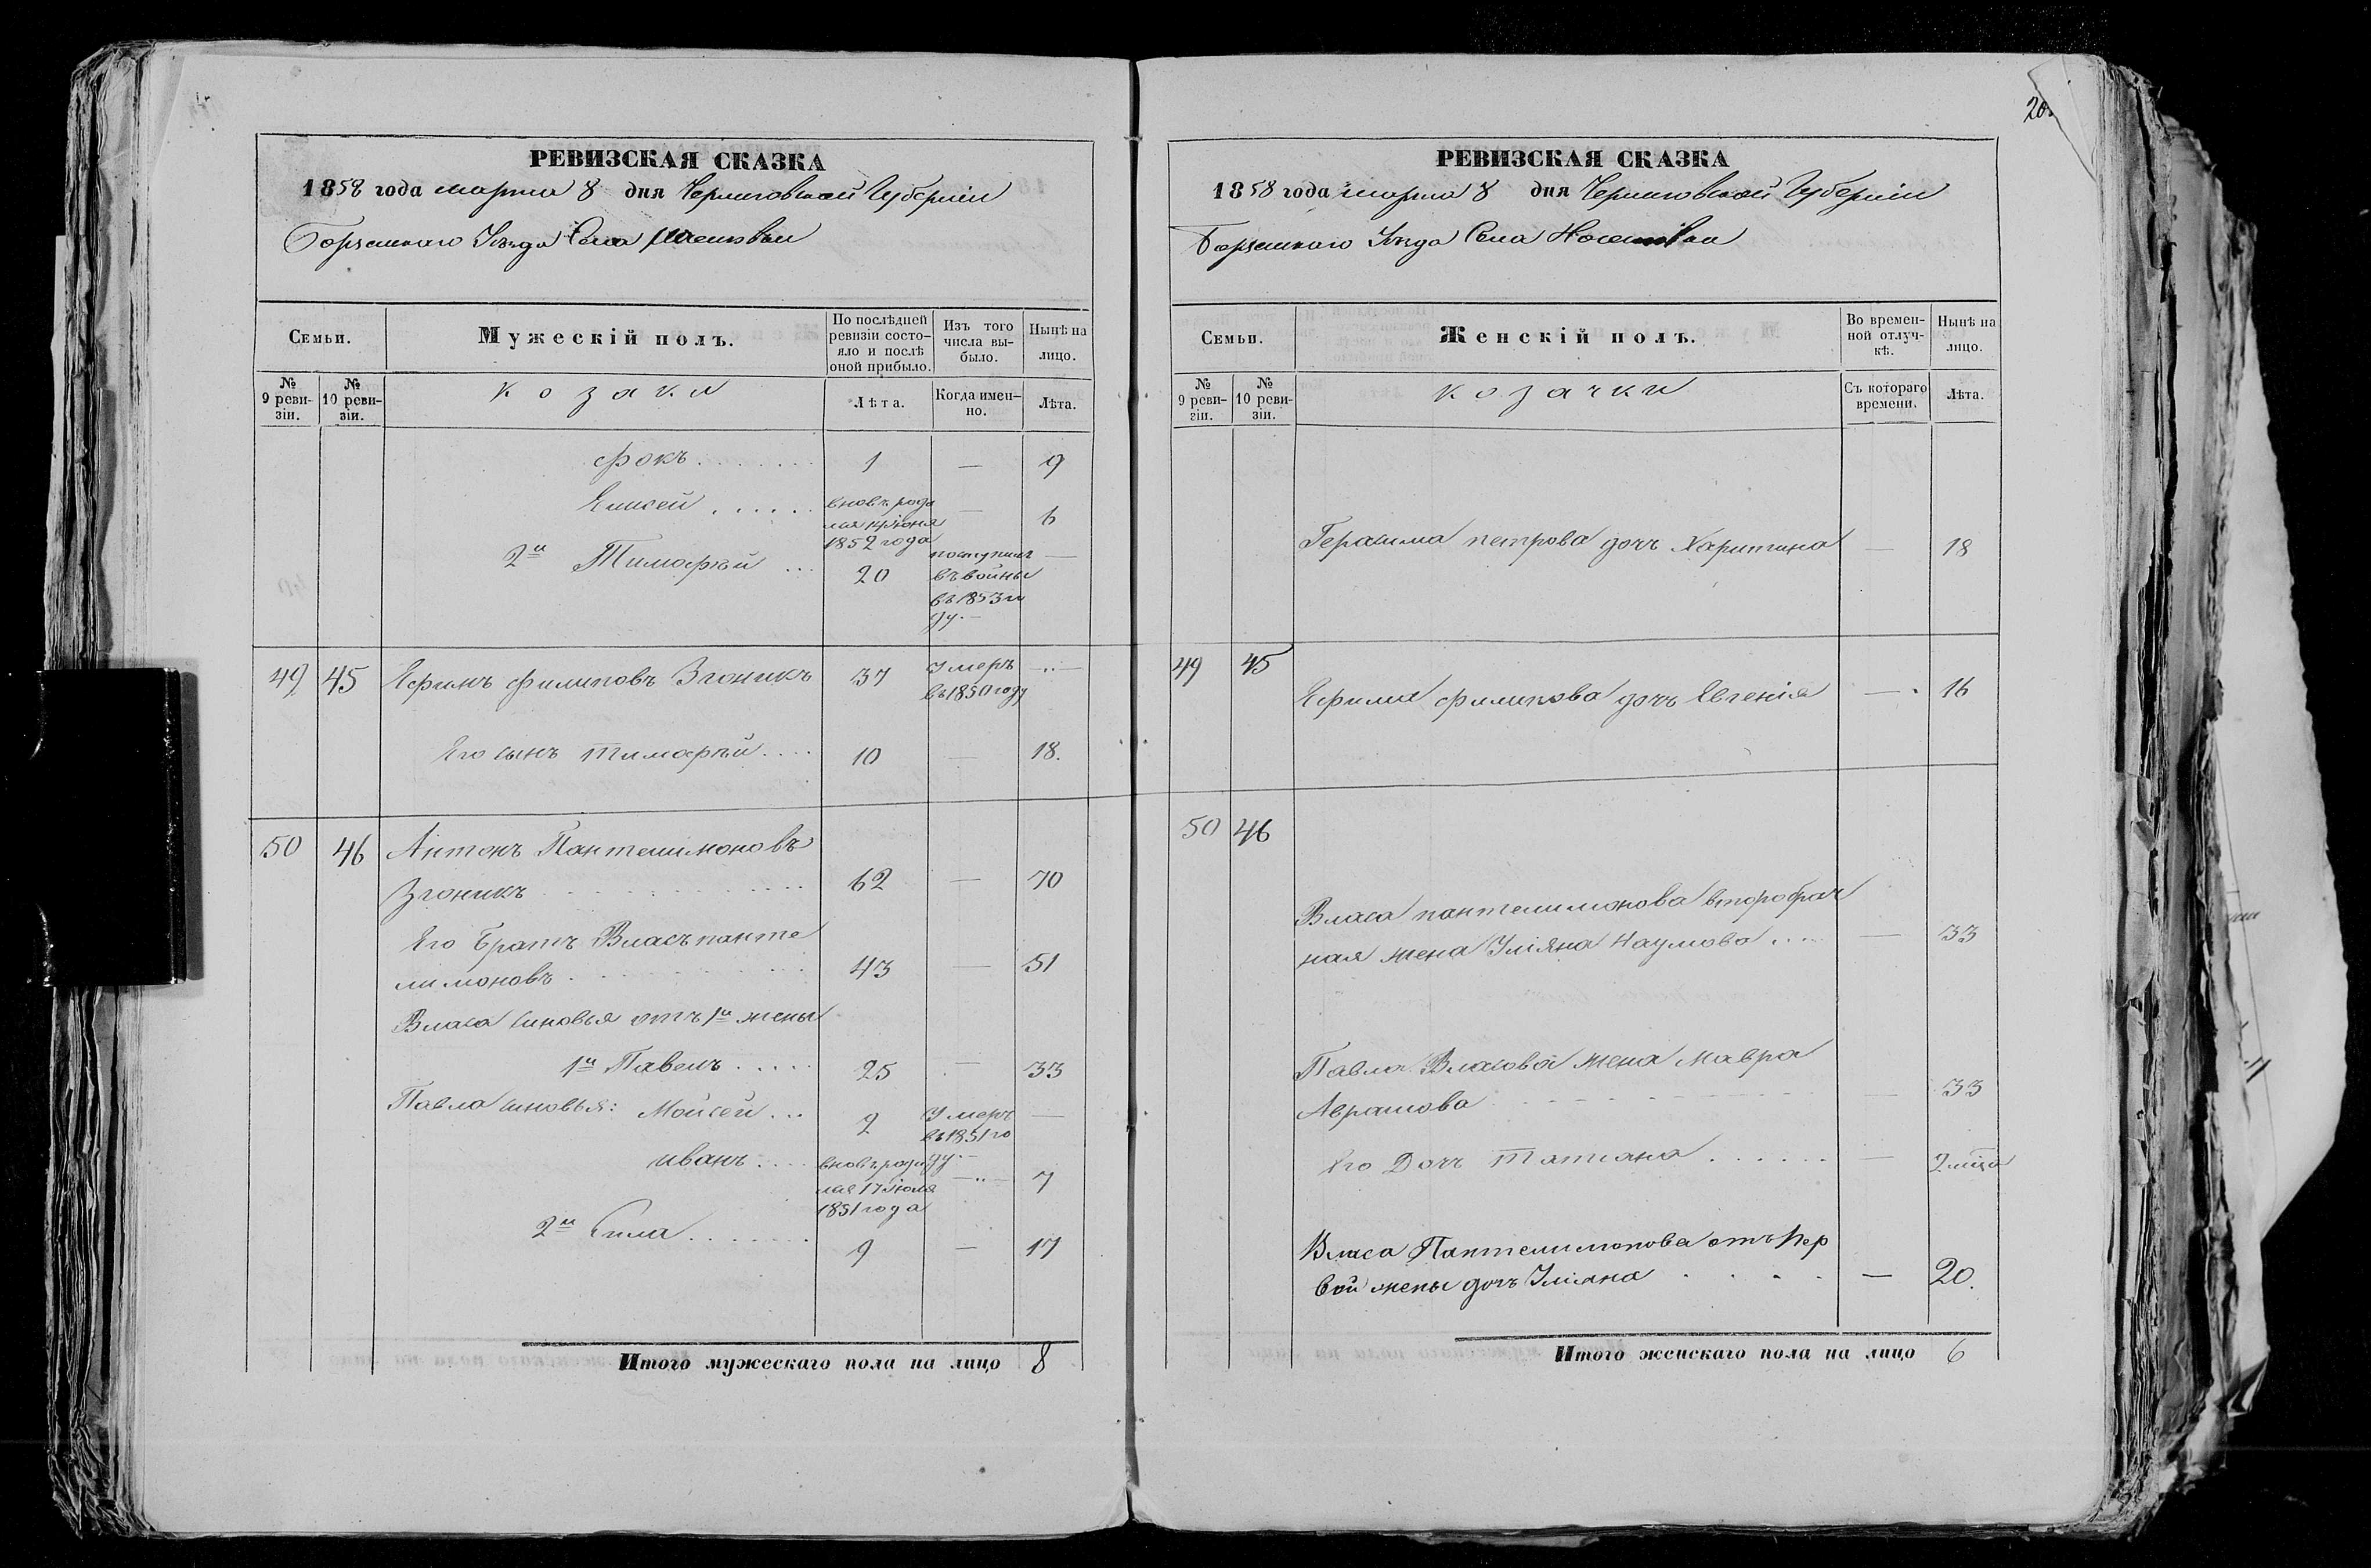 РЕВИЗСКАЯ СКАЗКА
1858 года марта 8 дня Черниговской Губерніи
Борзенскаго Уѣзда Села
Семьи.
Мужескій полъ.
По послѣдней ревизіи состояло и послѣ оной прибыло.
Изъ того числа выбыло.
Нынѣ на лицо.
№ 9 ревизіи.
№ 10 ревизіи.
козаки
Лѣта.
Когда именно.
Лѣта.
Фокъ 1 — 9
Елисей вновь роди — 6
лся іюня
1852 года
2й Тимофѣй 20 поступилъ —
въ войны
въ 1853 го
ду. —
49 45 Ефимъ Филиповъ Згоникъ 37 Умеръ —
въ 1850 году
Его сынъ Тимофѣй 10 — 18.
50 46 Антонъ Пантелимоновъ
Згоникъ 62 — 70
Его Братъ Власъ панте
лимоновъ 43 — 51
Власа синовья отъ 1й жены
1й Павелъ 25 — 33
Павла синовья: Мойсей 2 Умеръ —
въ 1851 го
ду. —
иванъ вновь роди — 7
лся 17 іюля
1851 года
2й Сила 9 — 17
Итого мужескаго пола на лицо 8
20
РЕВИЗСКАЯ СКАЗКА
1858 года марта 8 дня Черниговской Губерніи
Борзенскаго Уѣзда Села
Семьи.
Женскій полъ.
Во временной отлучкѣ.
Нынѣ на лицо.
№ 9 ревизіи.
№ 10 ревизіи.
козачки
Съ котораго времени.
Лѣта.
Герасима петрова дочь Харитина — 18
49 45
Ефима филипова дочь Евгенія — 16
50 46
Власа пантелимонова второбрач
ная жена Уліяна Наумова — 33
Павла Власова жена Мавра
Аврамова — 33
Его Дочь Татіана — 2 мѣца
Власа Пантелимонова отъ пер
вой жены дочь Уліяна — 20.
Итого женскаго пола на лицо 6